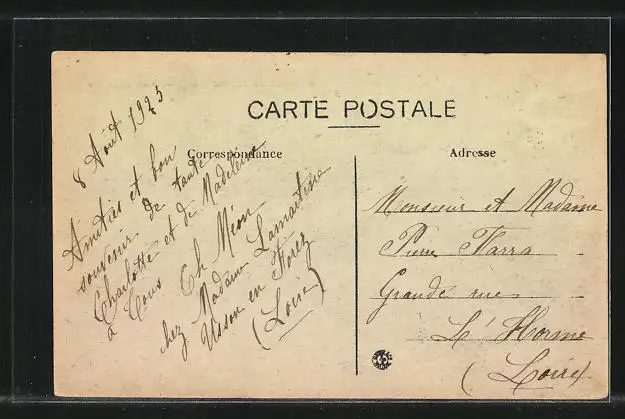 CARTE POSTALE
Correspondance
Adresse
8 Août 1923
Amitiés et bon
souvenir de tante
Charlotte et de Madeleine
à tous Ch Méon
chez Madame Lamartine
Usson en Forez
(Loire)
Monsieur et Madame
Pierre Varra
Grande rue
L'Horme
(Loire)